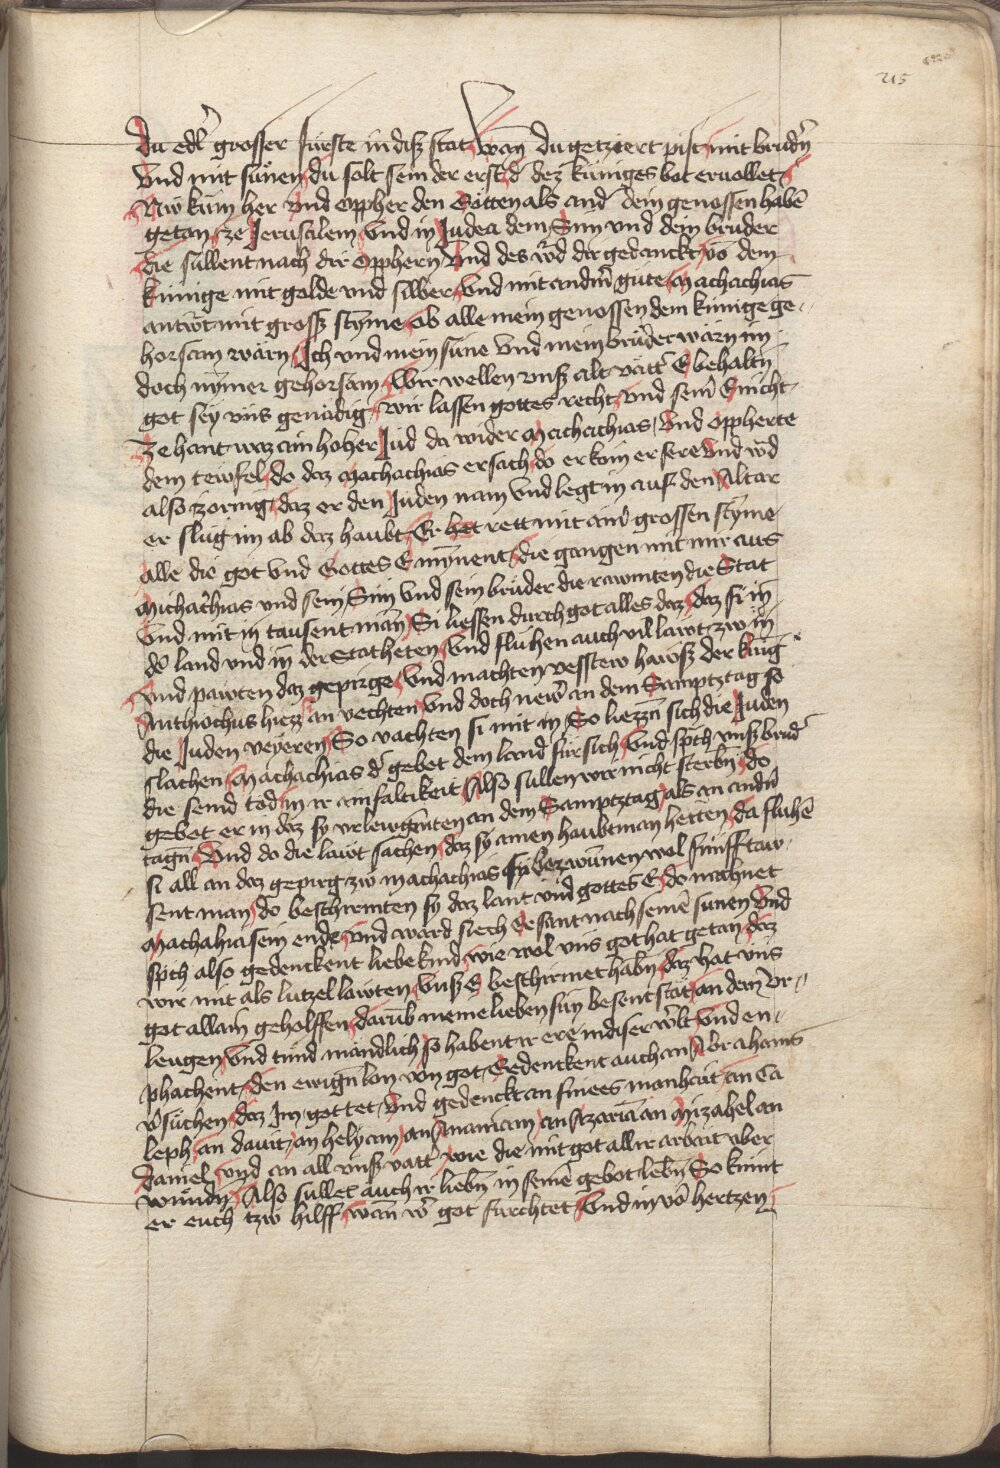 215
du edl' grosser Fürste in diſz ſtat wan̄ du getziert piſt mit brud'n
Vnd mit ſünen du ſolt ſein der erſt d' dez küniges bot ervollet
Nw kum her vnd oppher den Götten als and' dein genoſſen habē
getan ze Jeruſalem vnd in Judea dem Sun vnd dein bruder
die ſüllent nach dir opphern Vnd des w'd dir gedanckt vō dem
künige mit golde vnd ſilber vnd mit andm̄ gute Machachias
antw't mit groſſz ſtyme ob alle mein genoſſen dem künige ge-
horſam wärn Ich vnd mein ſüne Vnd mein brüder wärn im
doch nymer gehorſam Wir wellen vnſz alt vätt' E behaltn̄
got ſey vns genädig wir laſſen gottes recht vnd ſein E nicht
Ze hant waz ain hoher Jud da wider Mathathias Vnd oppherte
dem tewfel do daz Machachias erſach do erkom er ſere Vnd w'd
alſo zornig daz er den Juden nam Vnd legt in auf den Altar
er ſlug im ab daz haubt Er rett mit aind groſſen ſtyme
alle die got Vnd Gottes E mynnent die gangen mit mir aus
Michathias vnd ſein Sün Vnd ſein brüder die rawmten die Stat
Vnd mit in tauſent man Si lieſſen durch got alles daz daz ſi in
dē land vnd in der Stat heten Vnd fluhen auch vil lawt zw in
Vnd pawten daz gepirge Vnd machten veſſtew hawſz der küng
Anthiochus hiezz an vechten Vnd doch new' an dem Samptztag ſo
die Juden veyeren So vachten ſi mit in So liezzn̄ ſich die Juden
ſlachen Machachias d' gebet dem land für ſich Vnd ſpch vnſz brud'
die ſend tod in ir ainfaltikeit Alſo ſullen wir nicht ſterbn̄ do
gebot er in daz ſy vrlewgenten an dem Samptztag als an andn̄
tagn̄ Vnd do die lawt ſachen daz ſy ainen haubtman hetten da fluhē
ſi all an daz gepirg zw Machachias wol fünff taw-
ſent man do beſchirmten ſy daz lant vnd gottes E do nachnet
Machahia ſein ende vnd ward ſiech Er ſant nach ſeinē ſunen Vnd
ſpch alſo gedenckent liebe kind wie wol vns got hat getan daz
wir mit als lutzel lawten Vnſz E beſchirmet habn̄ daz hat vns
got allain geholffen darūb meine lieben ſün beſent ſtät an dem Vr-
leugen Vnd tund mändlich ſo habent ir ere in diſer w'lt Vnd en-
phachent den ewign̄ lon von got Gedenckent auch an Abrahams
v'ſüchen daz Im got tet Vnd gedenckt an finees manhait an Ca
leph an dauit an helyam an Ananiam an Azariā an Mizahel an
Daniel vnd an all vnſz vätt' wie die mit got all ir arbait vber
wundn̄ Alſo ſullet auch ir liebn̄ in ſeinē gebot lebn̄ So kumt
er euch tzw hilff wan̄ w' got fürchtet Vnd in vō hertzen